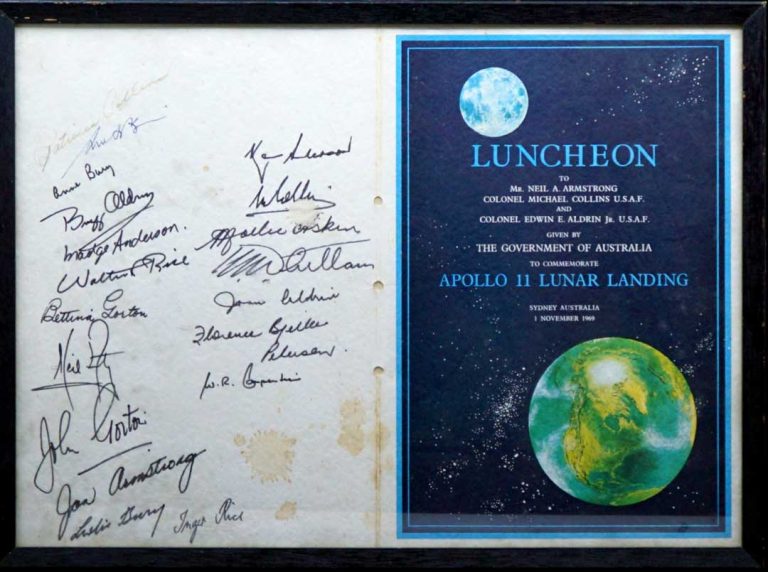 Patricia Collins
Anne Bury
Buzz Aldrin
Madge Anderson.
Walter Rice
Bettina Gorton
Neil
John Gorton
Jan Armstrong
Leslie Bury
Inger Rice
M Collins
Mollie Askin
Joan Aldrin
Florence Bjelke
Petersen.
W.R.
LUNCHEON
TO
MR. NEIL A. ARMSTRONG
COLONEL MICHAEL COLLINS U.S.A.F.
AND
COLONEL EDWIN E. ALDRIN JR. U.S.A.F.
GIVEN BY
THE GOVERNMENT OF AUSTRALIA
TO COMMEMORATE
APOLLO 11 LUNAR LANDING
SYDNEY AUSTRALIA
1 NOVEMBER 1969